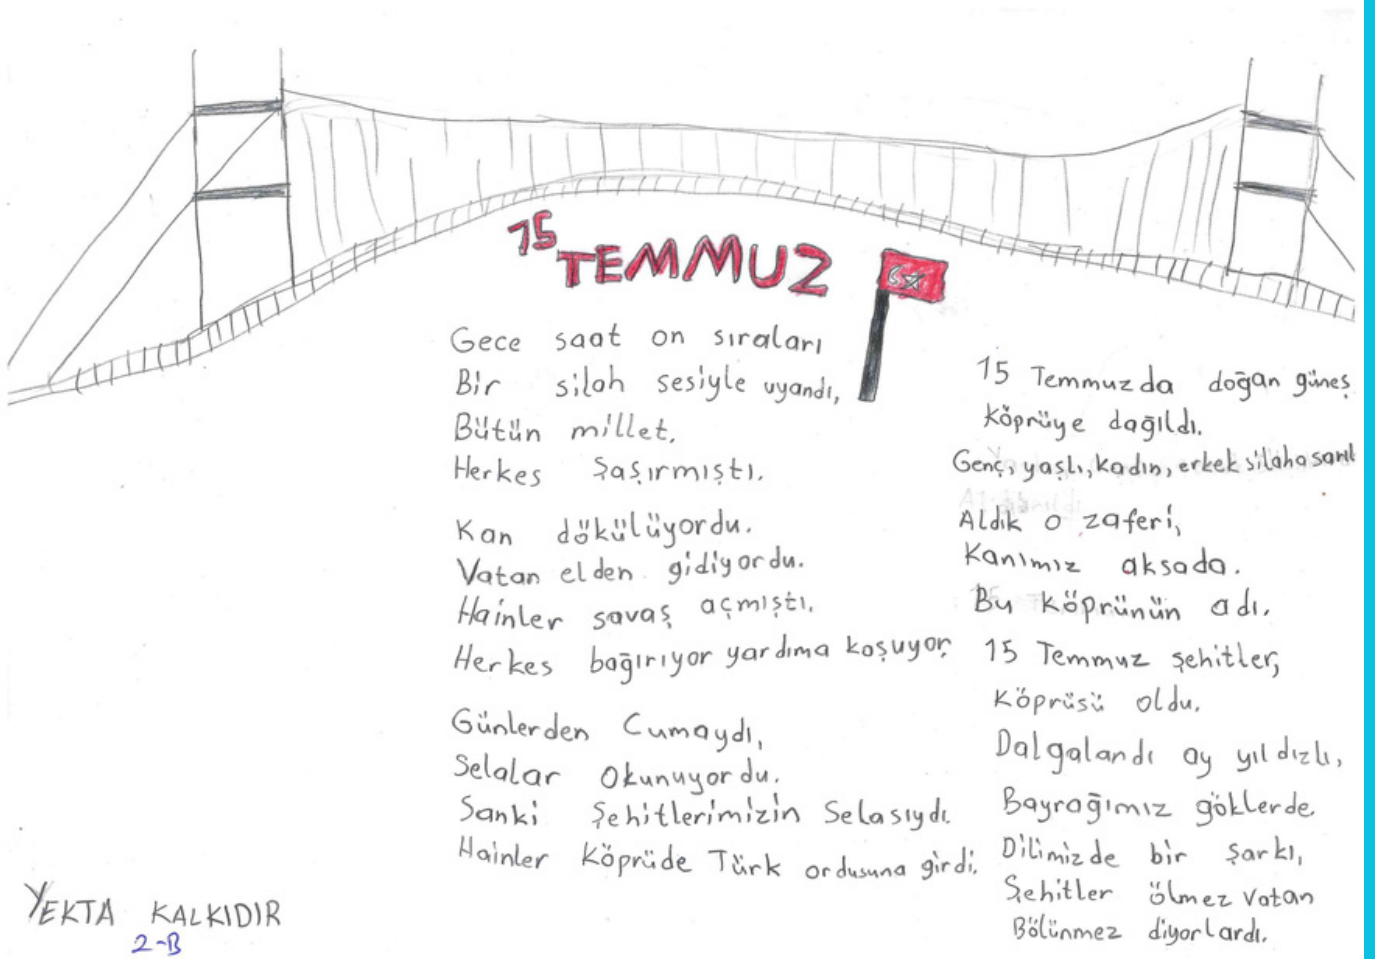 15
TEMMUZ
Gece saat on sıraları
Bir silah sesiyle uyandı,
Bütün millet.
Herkes Şaşırmıştı.
Kan dökülüyordu.
Vatan elden gidiyordu.
Hainler savaş açmıştı.
Herkes bağırıyor yardıma koşuyor.
Günlerden Cumaydı,
Selalar Okunuyordu.
Sanki Şehitlerimizin Selasıydı.
Hainler Köprüde Türk ordusuna girdi.
15 Temmuzda doğan güneş
Köprüye dağıldı.
Genç, yaşlı, kadın, erkek silaha sarıl
Aldık o zaferi,
Kanımız aksada.
Bu köprünün adı.
15 Temmuz şehitler,
Köprüsü oldu.
Dalgalandı ay yıldızlı,
Bayrağımız göklerde.
Dilimizde bir şarkı,
Şehitler ölmez vatan
Bölünmez diyorlardı.
YEKTA KALKIDIR
2-B